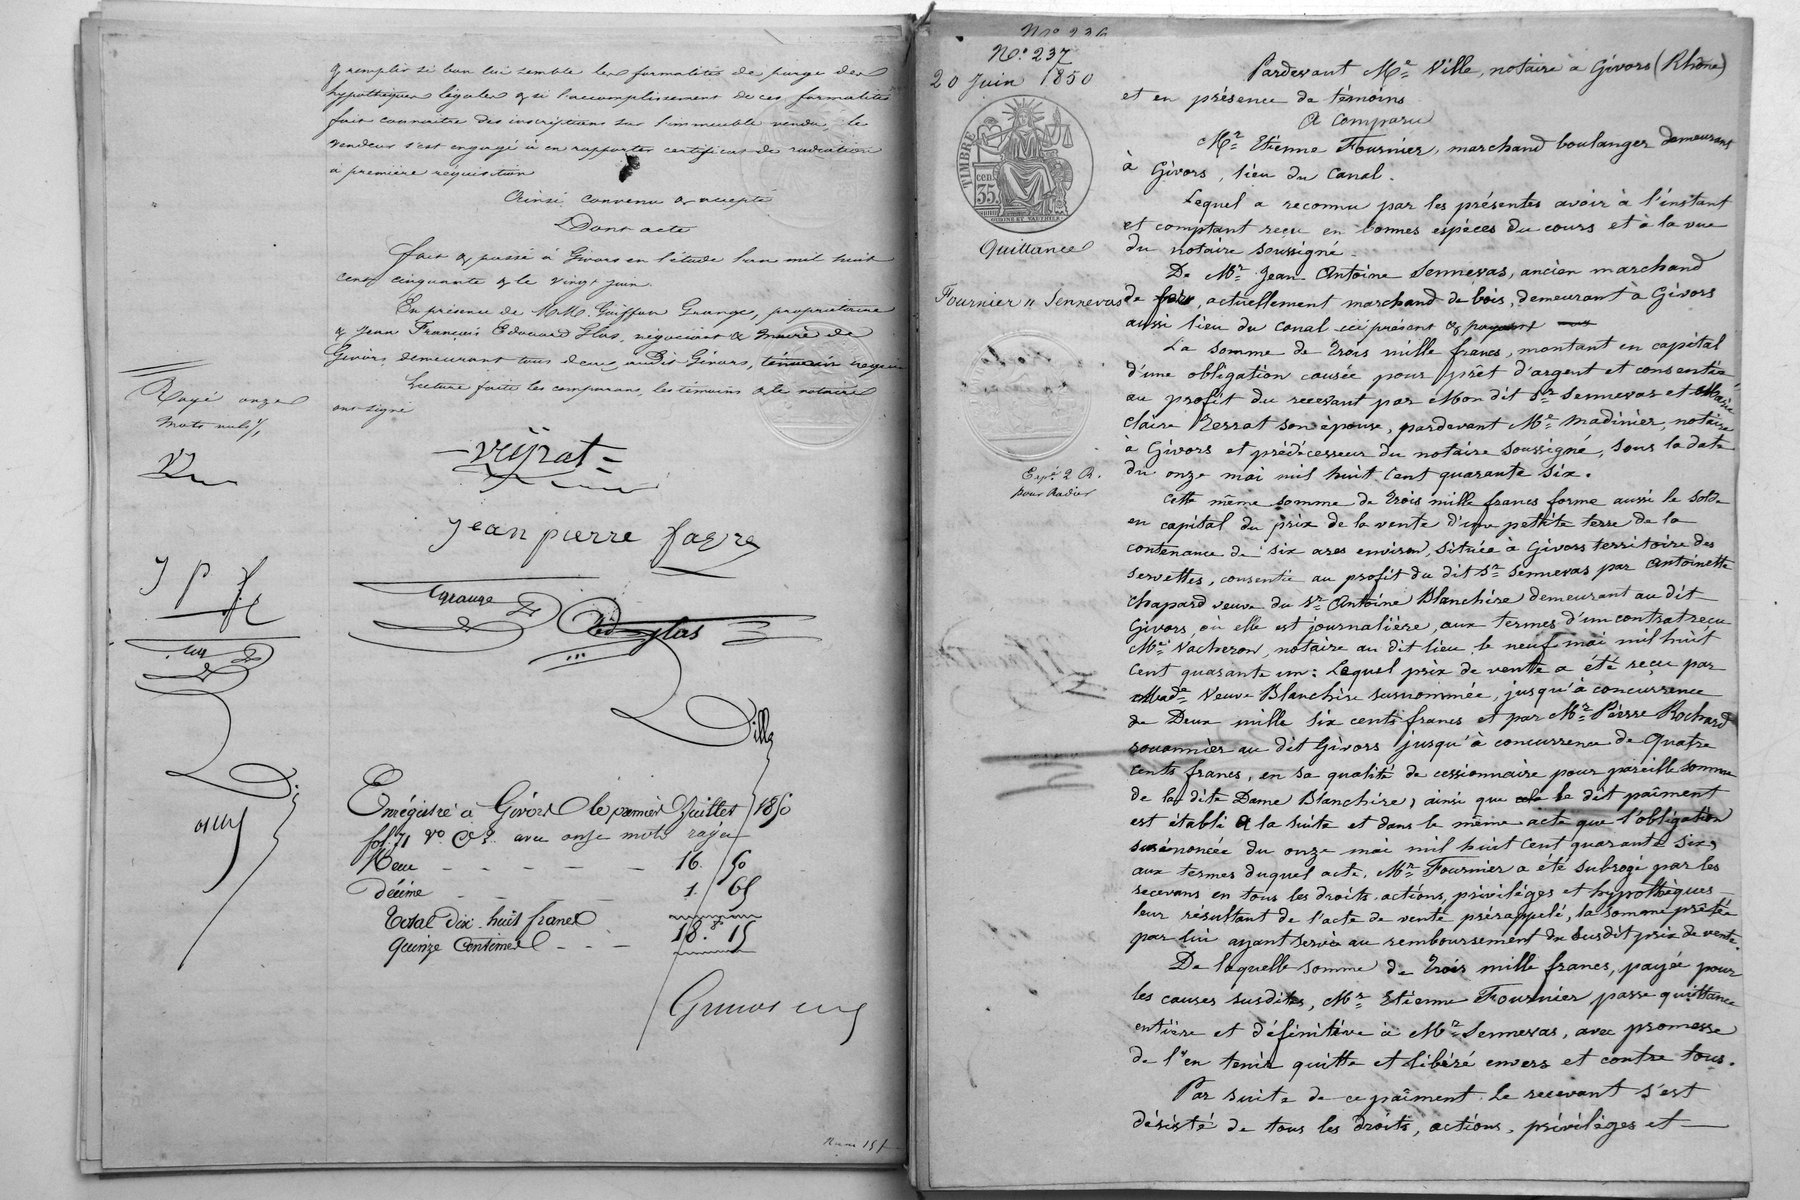 & remplir si bon lui semble les formalités de purge des
hypothèques légales & si l'accomplissement de ces formalités
fait connaitre des inscriptions sur l'immeuble vendu, le
vendeur s'est engagé à en rapporter certificat de radiation
à première réquisition
Ainsi convenu & accepté
Dont acte
fait & passé à Givors en l'étude l'an mil huit
cent cinquante & le vingt juin.
En présence de M.M. Goiffon Grange, propriétaire
& Jean François Edouard Glas, négociant & maire de
Givors, demeurant tous deux audit Givors, témoins requis
Lecture faite les comparans, les témoins & le notaire
ont signé
Rayé onze
mots nuls
veyrat
Jean pierre favre
J P f
grange
Ed glas
Ville
Enrégistré à Givors le premier Juillet 1850
fol. 71 v° C. avec onze mots rayés
Reçu 16. 50
décime 1. 65
Total dix huit francs
quinze Centimes 18. 15
N° 236
N° 237
20 Juin 1850
TIMBRE
35 cent
OUDINE ET VAUTHIER
Quittance
Fournier à Sennevas
Exp. 2 R.
pour Radier
Pardevant Me Ville, notaire à Givors (Rhône)
et en présence de témoins
A Comparu
Mr Etienne Fournier, marchand boulanger demeurant
à Givors, lieu du Canal.
Lequel a reconnu par les présentes avoir à l'instant
et comptant reçu en bonnes espèces du cours et à la vue
du notaire soussigné.
De Mr Jean Antoine Sennevas, ancien marchand
de actuellement marchand de bois, demeurant à Givors
aussi lieu du canal ici présent &
La somme de trois mille francs, montant en capital
d'une obligation causée pour prêt d'argent et consentie
au profit du recevant par Mon dit Sr Sennevas et Marie
Claire Terrat son épouse, pardevant Me Madinier, notaire
à Givors et prédécesseur du notaire soussigné, sous la date
du onze mai mil huit cent quarante six.
Cette même somme de trois mille francs forme aussi le solde
en capital du prix de la vente d'une petite terre de la
contenance de six ares environ, située à Givors territoire des
Servettes, consentie au profit du dit Sr Sennevas par Antoinette
Chapard veuve du Sr Antoine Blanchire demeurant au dit
Givors où elle est journalière, aux termes d'un contrat reçu
Me Vacheron, notaire au dit lieu le neuf mai mil huit
cent quarante un: Lequel prix de vente a été reçu par
Made Veuve Blanchire susnommée, jusqu'à concurrence
de Deux mille six cents francs et par Mr Pierre Rochard
rouannier au dit Givors jusqu'à concurrence de Quatre
cents francs, en sa qualité de cessionnaire pour pareille somme
de la dite Dame Blanchire, ainsi que le dit paîment
est établi à la suite et dans le même acte que l'obligation
susénoncée du onze mai mil huit cent quarante six,
aux termes duquel acte, Mr Fournier a été subrogé par les
recevans en tous les droits, actions, privilèges et hypothèques
leur résultant de l'acte de vente prérappelé, la somme prêtée
par lui ayant servie au remboursement du susdit prix de vente.
De laquelle somme de trois mille francs, payée pour
les causes susdites, Mr Etienne Fournier passe quittance
entière et définitive à Mr Sennevas, avec promesse
de l'en tenir quitte et libéré envers et contre tous.
Par suite de ce paîment le recevant s'est
désisté de tous les droits, actions, privilèges et